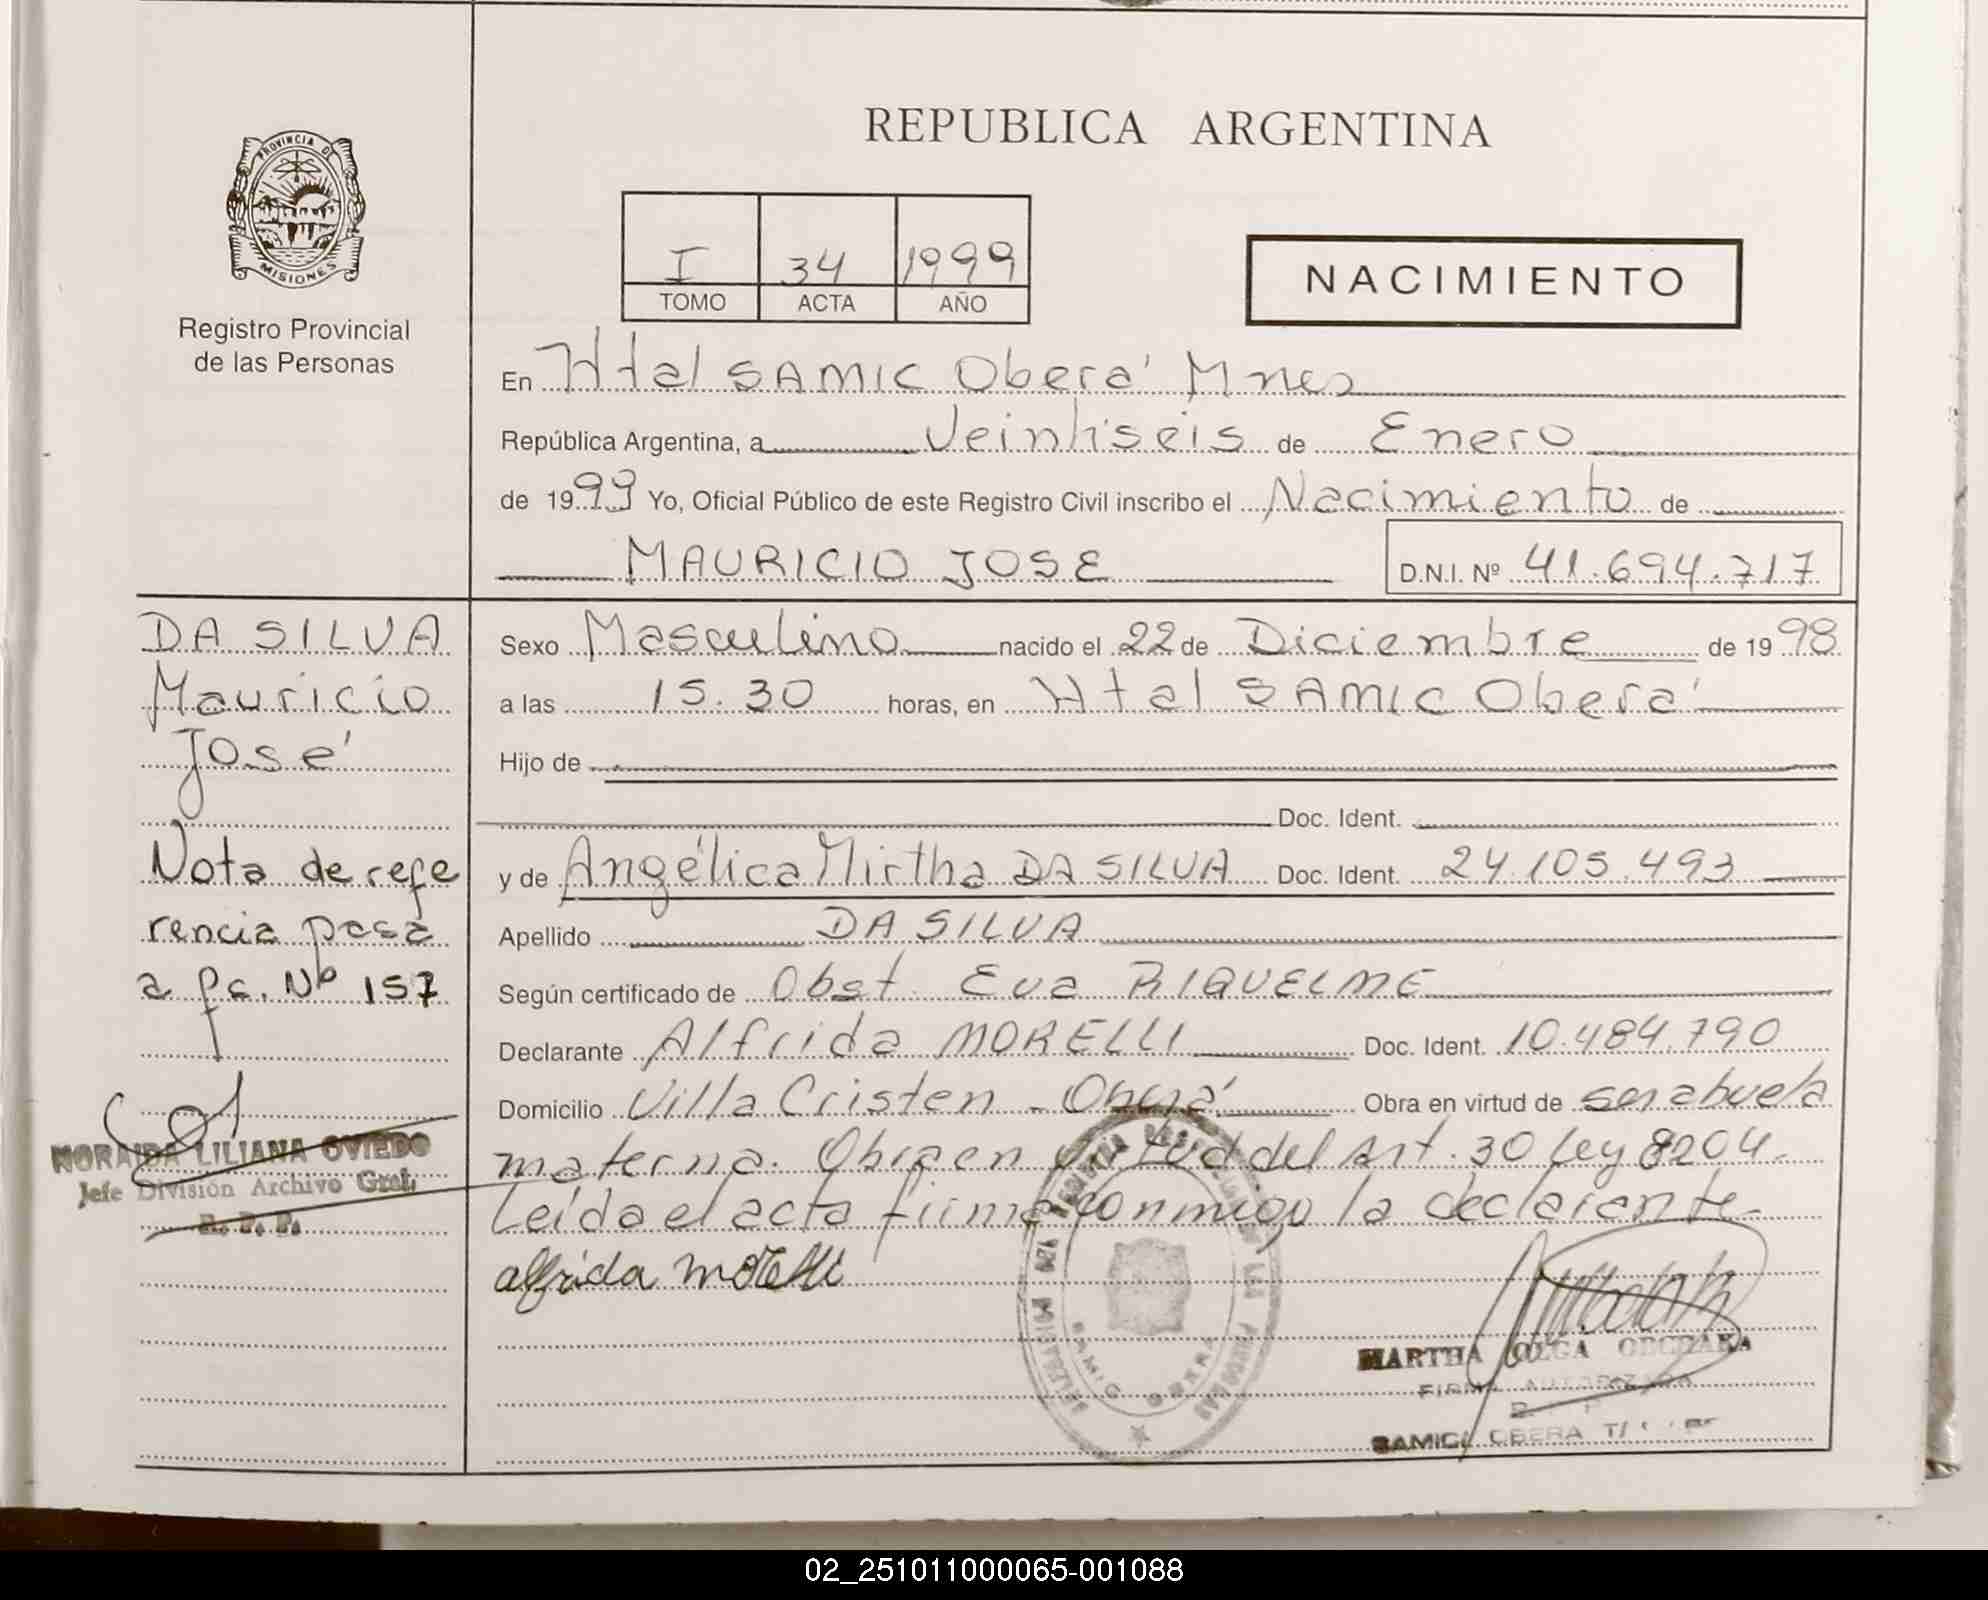 REPUBLICA ARGENTINA
PROVINCIA DE
MISIONES
Registro Provincial
de las Personas
I 34 1999
TOMO ACTA AÑO
NACIMIENTO
En Htal SAMIC Oberá Mnes
República Argentina, a Veintiséis de Enero
de 1999 Yo, Oficial Público de este Registro Civil inscribo el Nacimiento de
MAURICIO JOSE D.N.I. Nº 41.694.717
DA SILVA
Mauricio
José
Nota de refe
rencia pasa
a fs. Nº 157
NORAIDA LILIANA OVIEDO
Jefe División Archivo Gral.
R. P. P.
Sexo Masculino nacido el 22 de Diciembre de 1998
a las 15.30 horas, en Htal SAMIC Oberá
Hijo de
Doc. Ident.
y de Angélica Mirtha DA SILVA Doc. Ident. 24.105.493
Apellido DA SILVA
Según certificado de Obst. Eva RIQUELME
Declarante Alfrida MORELLI Doc. Ident. 10.484.790
Domicilio Villa Cristen - Oberá Obra en virtud de ser abuela
materna. Obra en virtud del Art. 30 Ley 8204.
Leída el acta firma conmigo la declarante
alfrida morelli
MARTHA OLGA
FIRMA AUTORIZADA
SAMIC OBERA
02_251011000065-001088